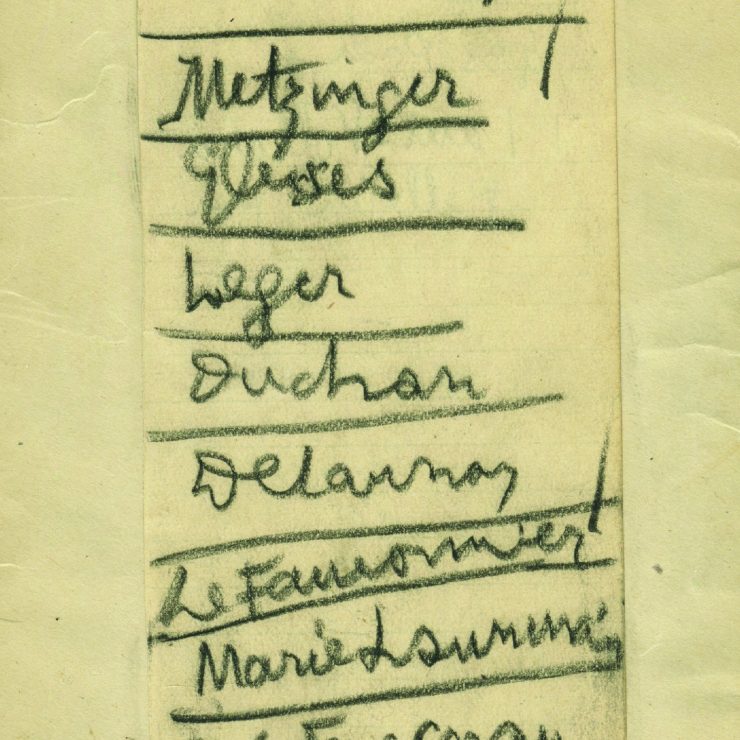 Metzinger
Gleizes
Leger
Duchan
Delaunay
Le Fauconnier
Marie Laurencin